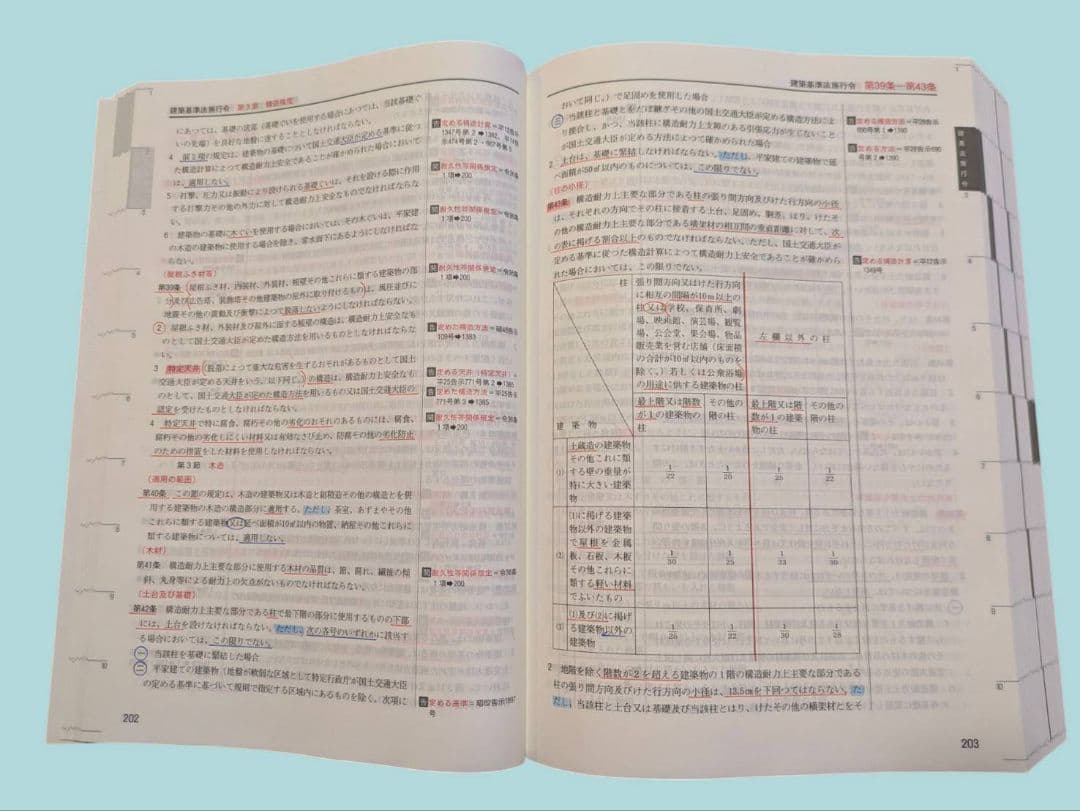 建築基準法施行令 第3章 構造強度
にあつては、基礎の底部(基礎ぐいを使用する場合にあつては、当該基礎ぐ
いの先端)を良好な地盤に達することとしなければならない。
4 前2項の規定は、建築物の基礎について国土交通大臣が定める基準に従つ
た構造計算によつて構造耐力上安全であることが確かめられた場合において
は、適用しない。
5 打撃、圧力又は振動により設けられる基礎ぐいは、それを設ける際に作用
する打撃力その他の外力に対して構造耐力上安全なものでなければならな
い。
6 建築物の基礎に木ぐいを使用する場合においては、その木ぐいは、平家建
の木造の建築物に使用する場合を除き、常水面下にあるようにしなければな
らない。
(屋根ふき材等)
第39条 屋根ふき材、内装材、外装材、帳壁その他これらに類する建築物の部
分及び広告塔、装飾塔その他建築物の屋外に取り付けるものは、風圧並びに
地震その他の震動及び衝撃によつて脱落しないようにしなければならない。
2 屋根ふき材、外装材及び屋外に面する帳壁の構造は、構造耐力上安全なも
のとして国土交通大臣が定めた構造方法を用いるものとしなければならな
い。
3 特定天井(脱落によつて重大な危害を生ずるおそれがあるものとして国土
交通大臣が定める天井をいう。以下同じ。)の構造は、構造耐力上安全なも
のとして、国土交通大臣が定めた構造方法を用いるもの又は国土交通大臣の
認定を受けたものとしなければならない。
4 特定天井で特に腐食、腐朽その他の劣化のおそれのあるものには、腐食、
腐朽その他の劣化しにくい材料又は有効なさび止め、防腐その他の劣化防止
のための措置をした材料を使用しなければならない。
第3節 木造
(適用の範囲)
第40条 この節の規定は、木造の建築物又は木造と組積造その他の構造とを併
用する建築物の木造の構造部分に適用する。ただし、茶室、あずまやその他
これらに類する建築物又は延べ面積が10㎡以内の物置、納屋その他これらに
類する建築物については、適用しない。
(木材)
第41条 構造耐力上主要な部分に使用する木材の品質は、節、腐れ、繊維の傾
斜、丸身等による耐力上の欠点がないものでなければならない。
(土台及び基礎)
第42条 構造耐力上主要な部分である柱で最下階の部分に使用するものの下部
には、土台を設けなければならない。ただし、次の各号のいずれかに該当す
る場合においては、この限りでない。
一 当該柱を基礎に緊結した場合
二 平家建ての建築物(地盤が軟弱な区域として特定行政庁が国土交通大臣
の定める基準に基づいて規則で指定する区域内にあるものを除く。次項に
定める構造計算=平12告示
1347号第2➡1382
耐久性等関係規定=令36条
1項➡200
耐久性等関係規定=令36条
1項➡200
耐久性等関係規定=令36条
1項➡200
定めた構造方法=昭46告示
109号➡1383
定める天井(特定天井)=
平25告示771号第2➡1385
定めた構造方法=平25告示
771号第3➡1385
耐久性等関係規定=令36条
1項➡200
耐久性等関係規定=令36条
1項➡200
定める基準=昭62告示1897
号
202
建築基準法施行令 第39条―第43条
おいて同じ。)で足固めを使用した場合
三 当該柱と基礎とをだぼ継ぎその他の国土交通大臣が定める構造方法によ
り接合し、かつ、当該柱に構造耐力上支障のある引張応力が生じないこと
が国土交通大臣が定める方法によつて確かめられた場合
2 土台は、基礎に緊結しなければならない。ただし、平家建ての建築物で延
べ面積が50㎡以内のものについては、この限りでない。
(柱の小径)
第43条 構造耐力上主要な部分である柱の張り間方向及びけた行方向の小径
は、それぞれの方向でその柱に接着する土台、足固め、胴差、はり、けたそ
の他の構造耐力上主要な部分である横架材の相互間の垂直距離に対して、次
の表に掲げる割合以上のものでなければならない。ただし、国土交通大臣が
定める基準に従つた構造計算によつて構造耐力上安全であることが確かめら
れた場合においては、この限りでない。
柱
建築物
張り間方向又はけた行方向
に相互の間隔が10m以上の
柱又は学校、保育所、劇
場、映画館、演芸場、観覧
場、公会堂、集会場、物品
販売業を営む店舗(床面積
の合計が10㎡以内のものを
除く。)若しくは公衆浴場
の用途に供する建築物の柱
左欄以外の柱
最上階又は階数
が1の建築物の
柱
その他の
階の柱
最上階又は階
数が1の建築
物の柱
その他の
階の柱
(1) 土蔵造の建築物
その他これに類
する壁の重量が
特に大きい建築
物
1/22 1/20 1/25 1/22
(2) (1)に掲げる建築
物以外の建築物
で屋根を金属
板、石板、木板
その他これらに
類する軽い材料
でふいたもの
1/30 1/25 1/33 1/30
(3) (1)及び(2)に掲げ
る建築物以外の
建築物
1/25 1/22 1/30 1/28
2 地階を除く階数が2を超える建築物の1階の構造耐力上主要な部分である
柱の張り間方向及びけた行方向の小径は、13.5㎝を下回つてはならない。た
だし、当該柱と土台又は基礎及び当該柱とはり、けたその他の横架材とをそ
定める構造方法=平28告示
690号第1➡1390
定める方法=平28告示690
号第2➡1390
定める構造計算=平12告示
1349号
建築基準法施行令
203